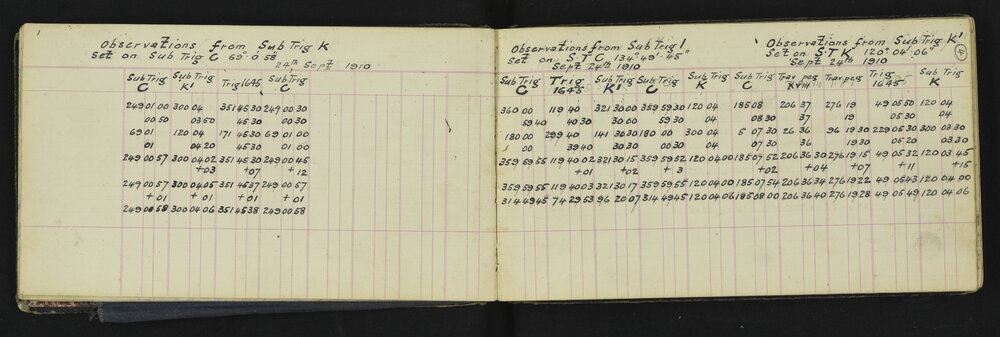 1
Observations from Sub Trig K
Set on Sub Trig C 69° 0' 58"
24th Sept 1910
Sub Trig C Sub Trig K' Trig 1645 Sub Trig C
249 01 00 300 04 351 45 30 249 00 30
00 50 03 50 45 30 00 30
69 01 120 04 171 45 30 69 01 00
01 04 20 45 30 01 00
249 00 57 300 04 02 351 45 30 249 00 45
+03 +07 +12
249 00 57 300 04 05 351 45 37 249 00 57
+01 +01 +01 +01
249 00 58 300 04 06 351 45 38 249 00 58
Observations from Sub Trig I
Set on S.T C 134° 49' 45"
Sept 24th 1910
Sub Trig C Trig 1645 Sub Trig K' Sub Trig C Sub Trig K
360 00 119 40 321 30 00 359 59 30 120 04
59 40 40 30 30 00 59 30 04
180 00 299 40 141 30 30 180 00 300 04
39 40 30 30 00 30 04
359 59 55 119 40 02 321 30 15 359 59 52 120 04 00
+01 +02 + 3
359 59 55 119 40 03 321 30 17 359 59 55 120 04 00
314 49 45 74 29 53 96 20 07 314 49 45 120 04 06
Observations from Sub Trig K'
Set on S T K 120° 04' 06"
Sept 24th 1910
4
Sub Trig C Trav peg XVIII Trav peg Trig 1645 Sub Trig K
185 08 206 37 276 19 49 05 50 120 04
08 30 37 19 05 30 04
5 07 30 26 36 96 19 30 229 05 30 300 03 30
07 30 36 19 30 05 20 03 30
185 07 52 206 36 30 276 19 15 49 05 32 120 03 45
+02 +04 +07 +11 +15
185 07 54 206 36 34 276 19 22 49 05 43 120 04 00
185 08 00 206 36 40 276 19 28 49 05 49 120 04 06